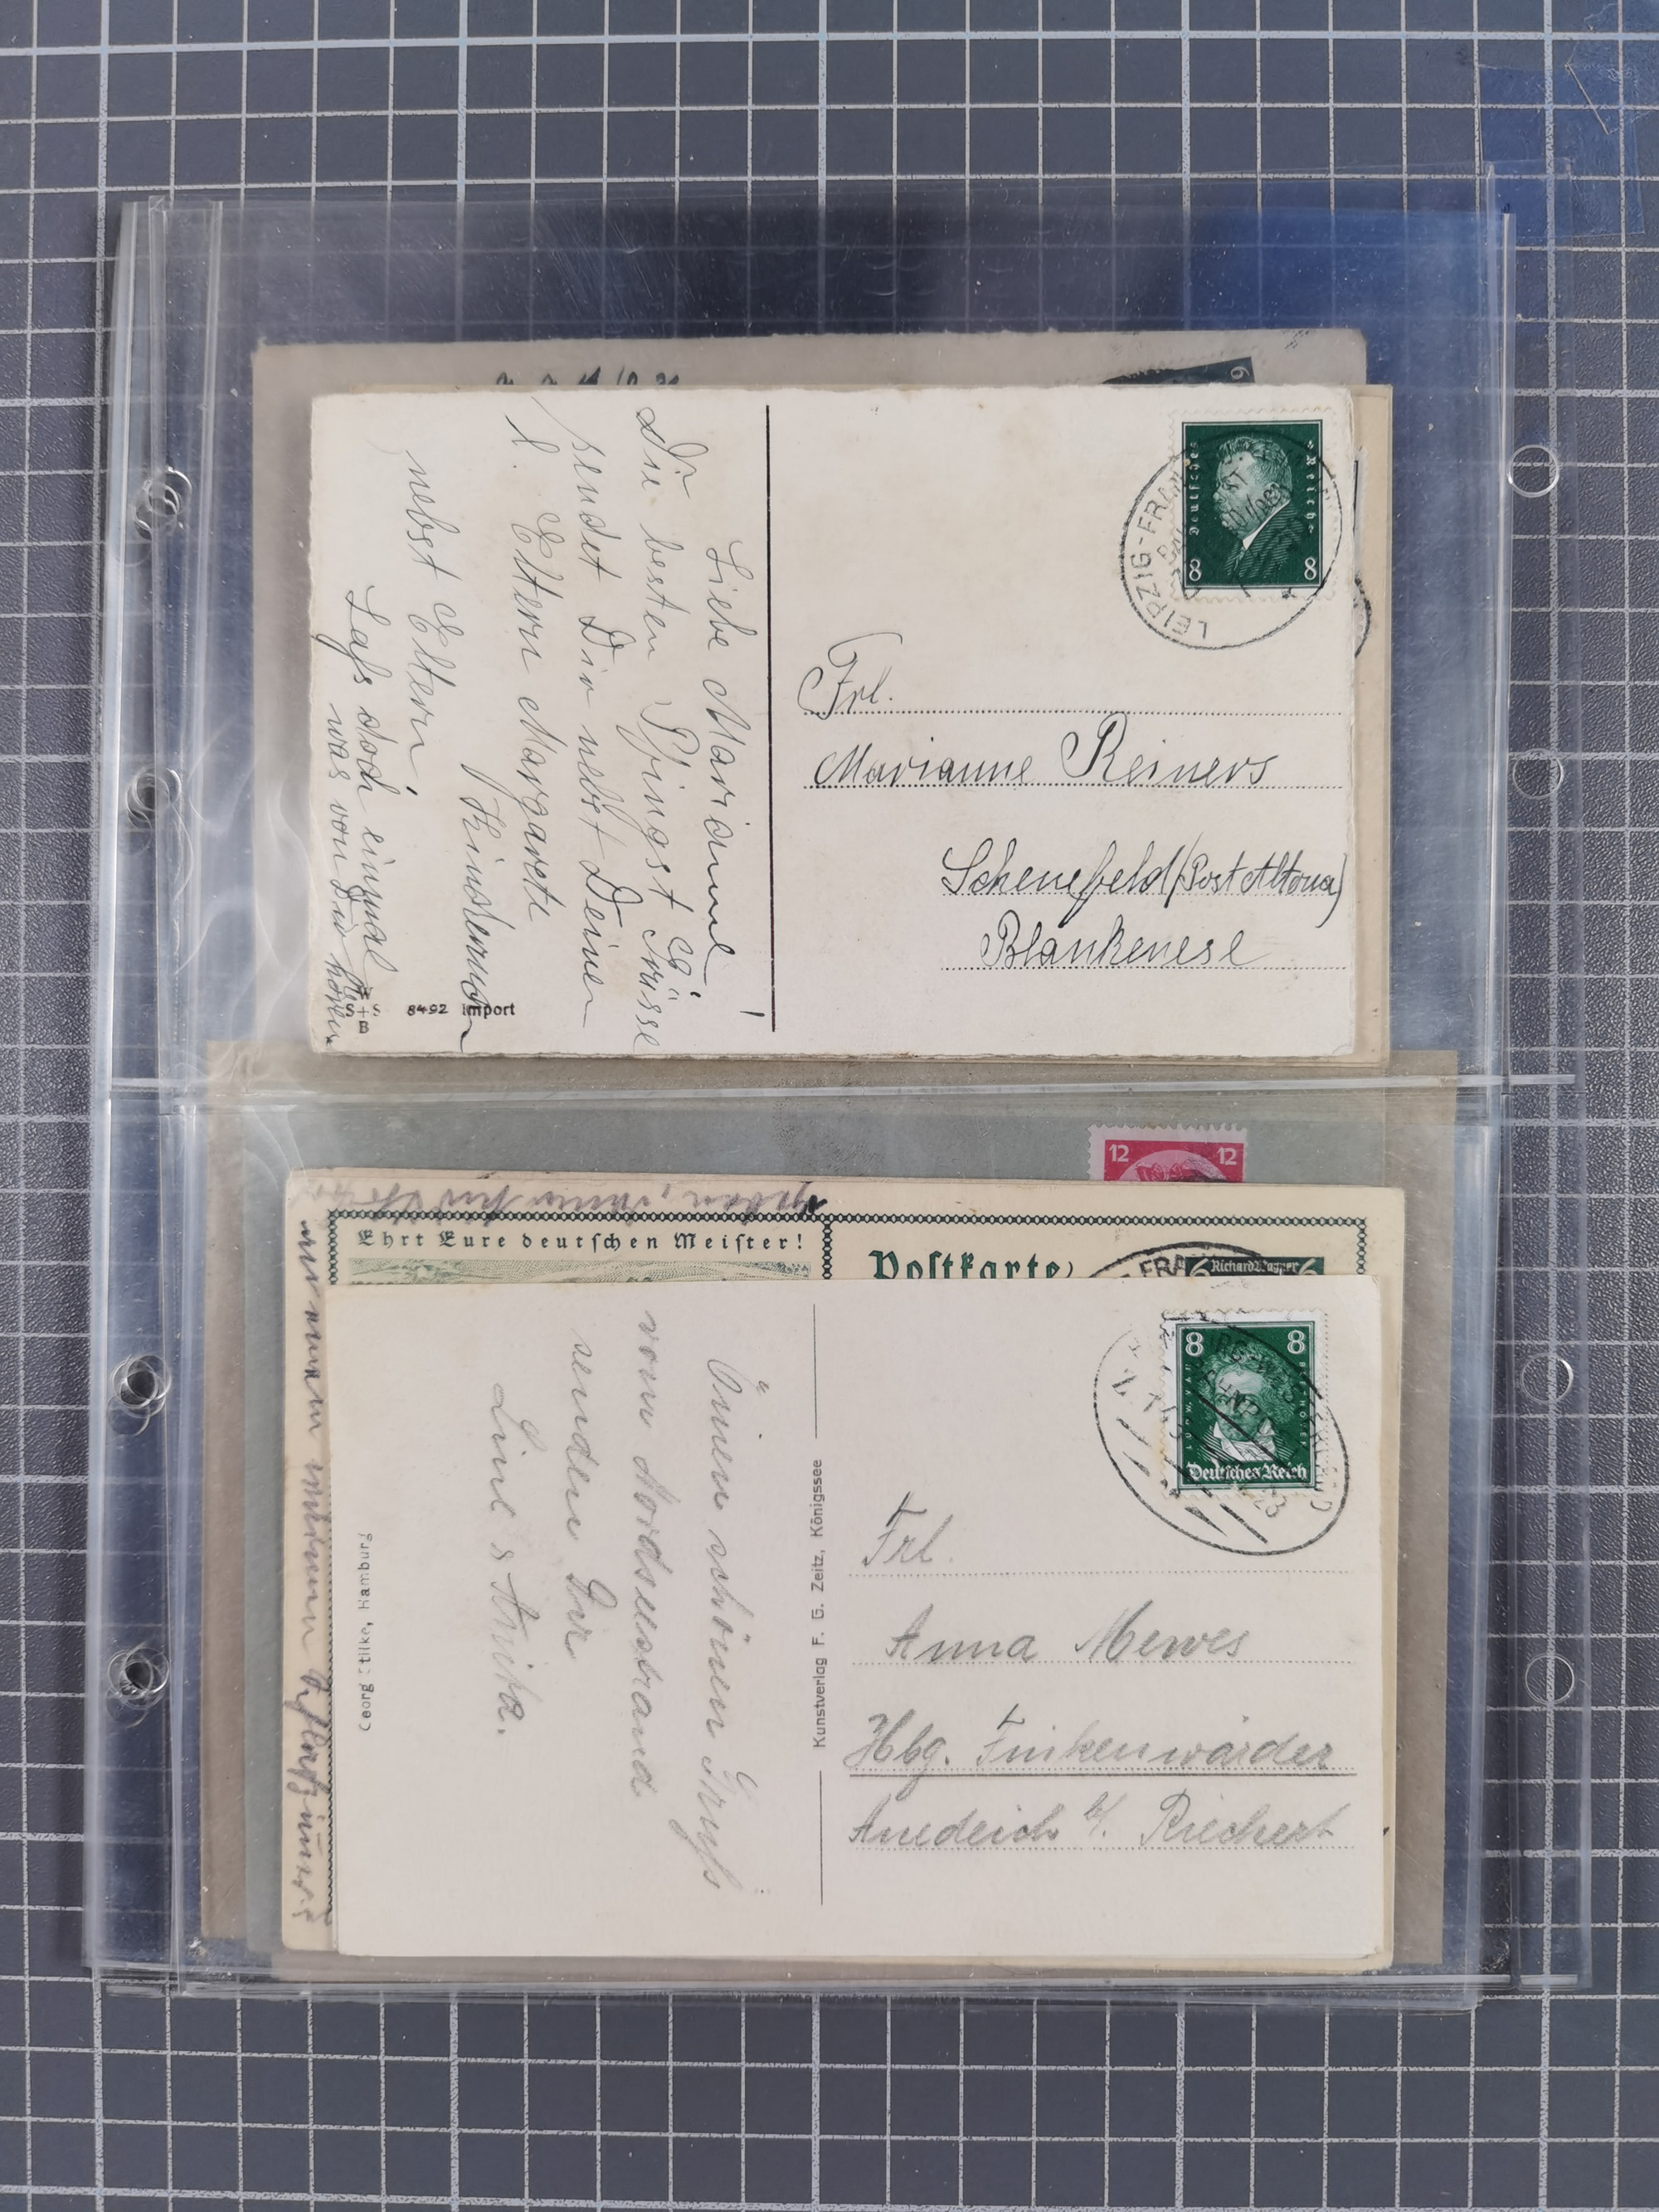 Liebe Marianne!
Die besten Pfingst Grüsse
sendet Dir nebst Deinen
l. Eltern Margarete
nebst Eltern
Lass doch einmal
was von Dir hören
W
S+S
B
8492 Import
Deutsches Reich
8 8
LEIPZIG-FRA
Frl.
Marianne Reiners
Schenefeld (Post Altona)
Blankenese
12 12
Ehrt Eure deutſchen Meiſter!
Poſtkarte
FRA
6 Richard Wagner 6
Einen schönen Gruß
vom Nordseestrand
senden Dir
Line & Anita.
Georg Stilke, Hamburg
Kunstverlag F. G. Zeitz, Königssee
8 8
Deutſches Reich
Frl.
Anna Mewes
Hbg. Finkenwärder
Auedeich b/. Riechert